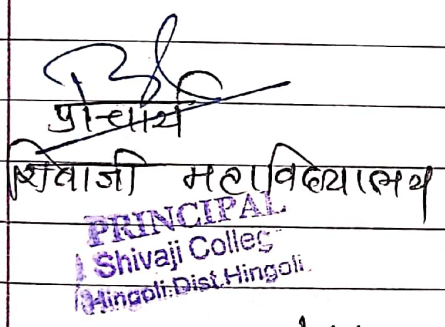 प्राचार्य
शिवाजी महाविद्यालय
PRINCIPAL
Shivaji Colleg
Hingoli.Dist.Hingoli.